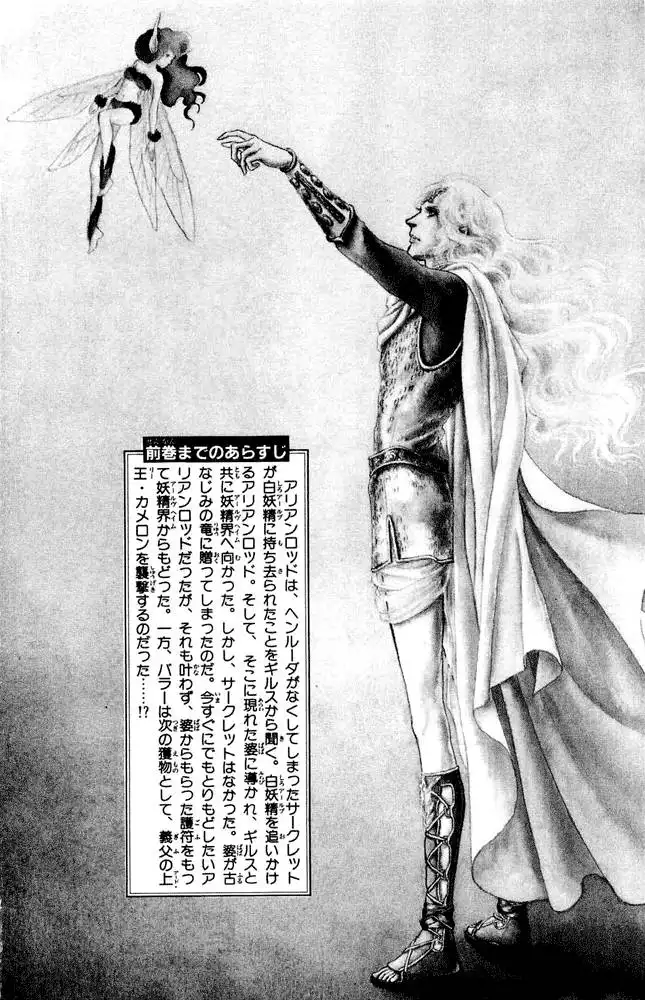 前巻までのあらすじ
アリアンロッドは、ヘンルーダがなくしてしまったサークレット
が白妖精に持ち去られたことをギルスから聞く。白妖精を追いかけ
るアリアンロッド。そして、そこに現れた婆に導かれ、ギルスと
共に妖精界へ向かった。しかし、サークレットはなかった。婆が古
なじみの竜に贈ってしまったのだ。今すぐにでもとりもどしたいア
リアンロッドだったが、それも叶わず、婆からもらった護符をもっ
て妖精界からもどった。一方、バラーは次の獲物として、義父の上
王・カメロンを襲撃するのだった……!?